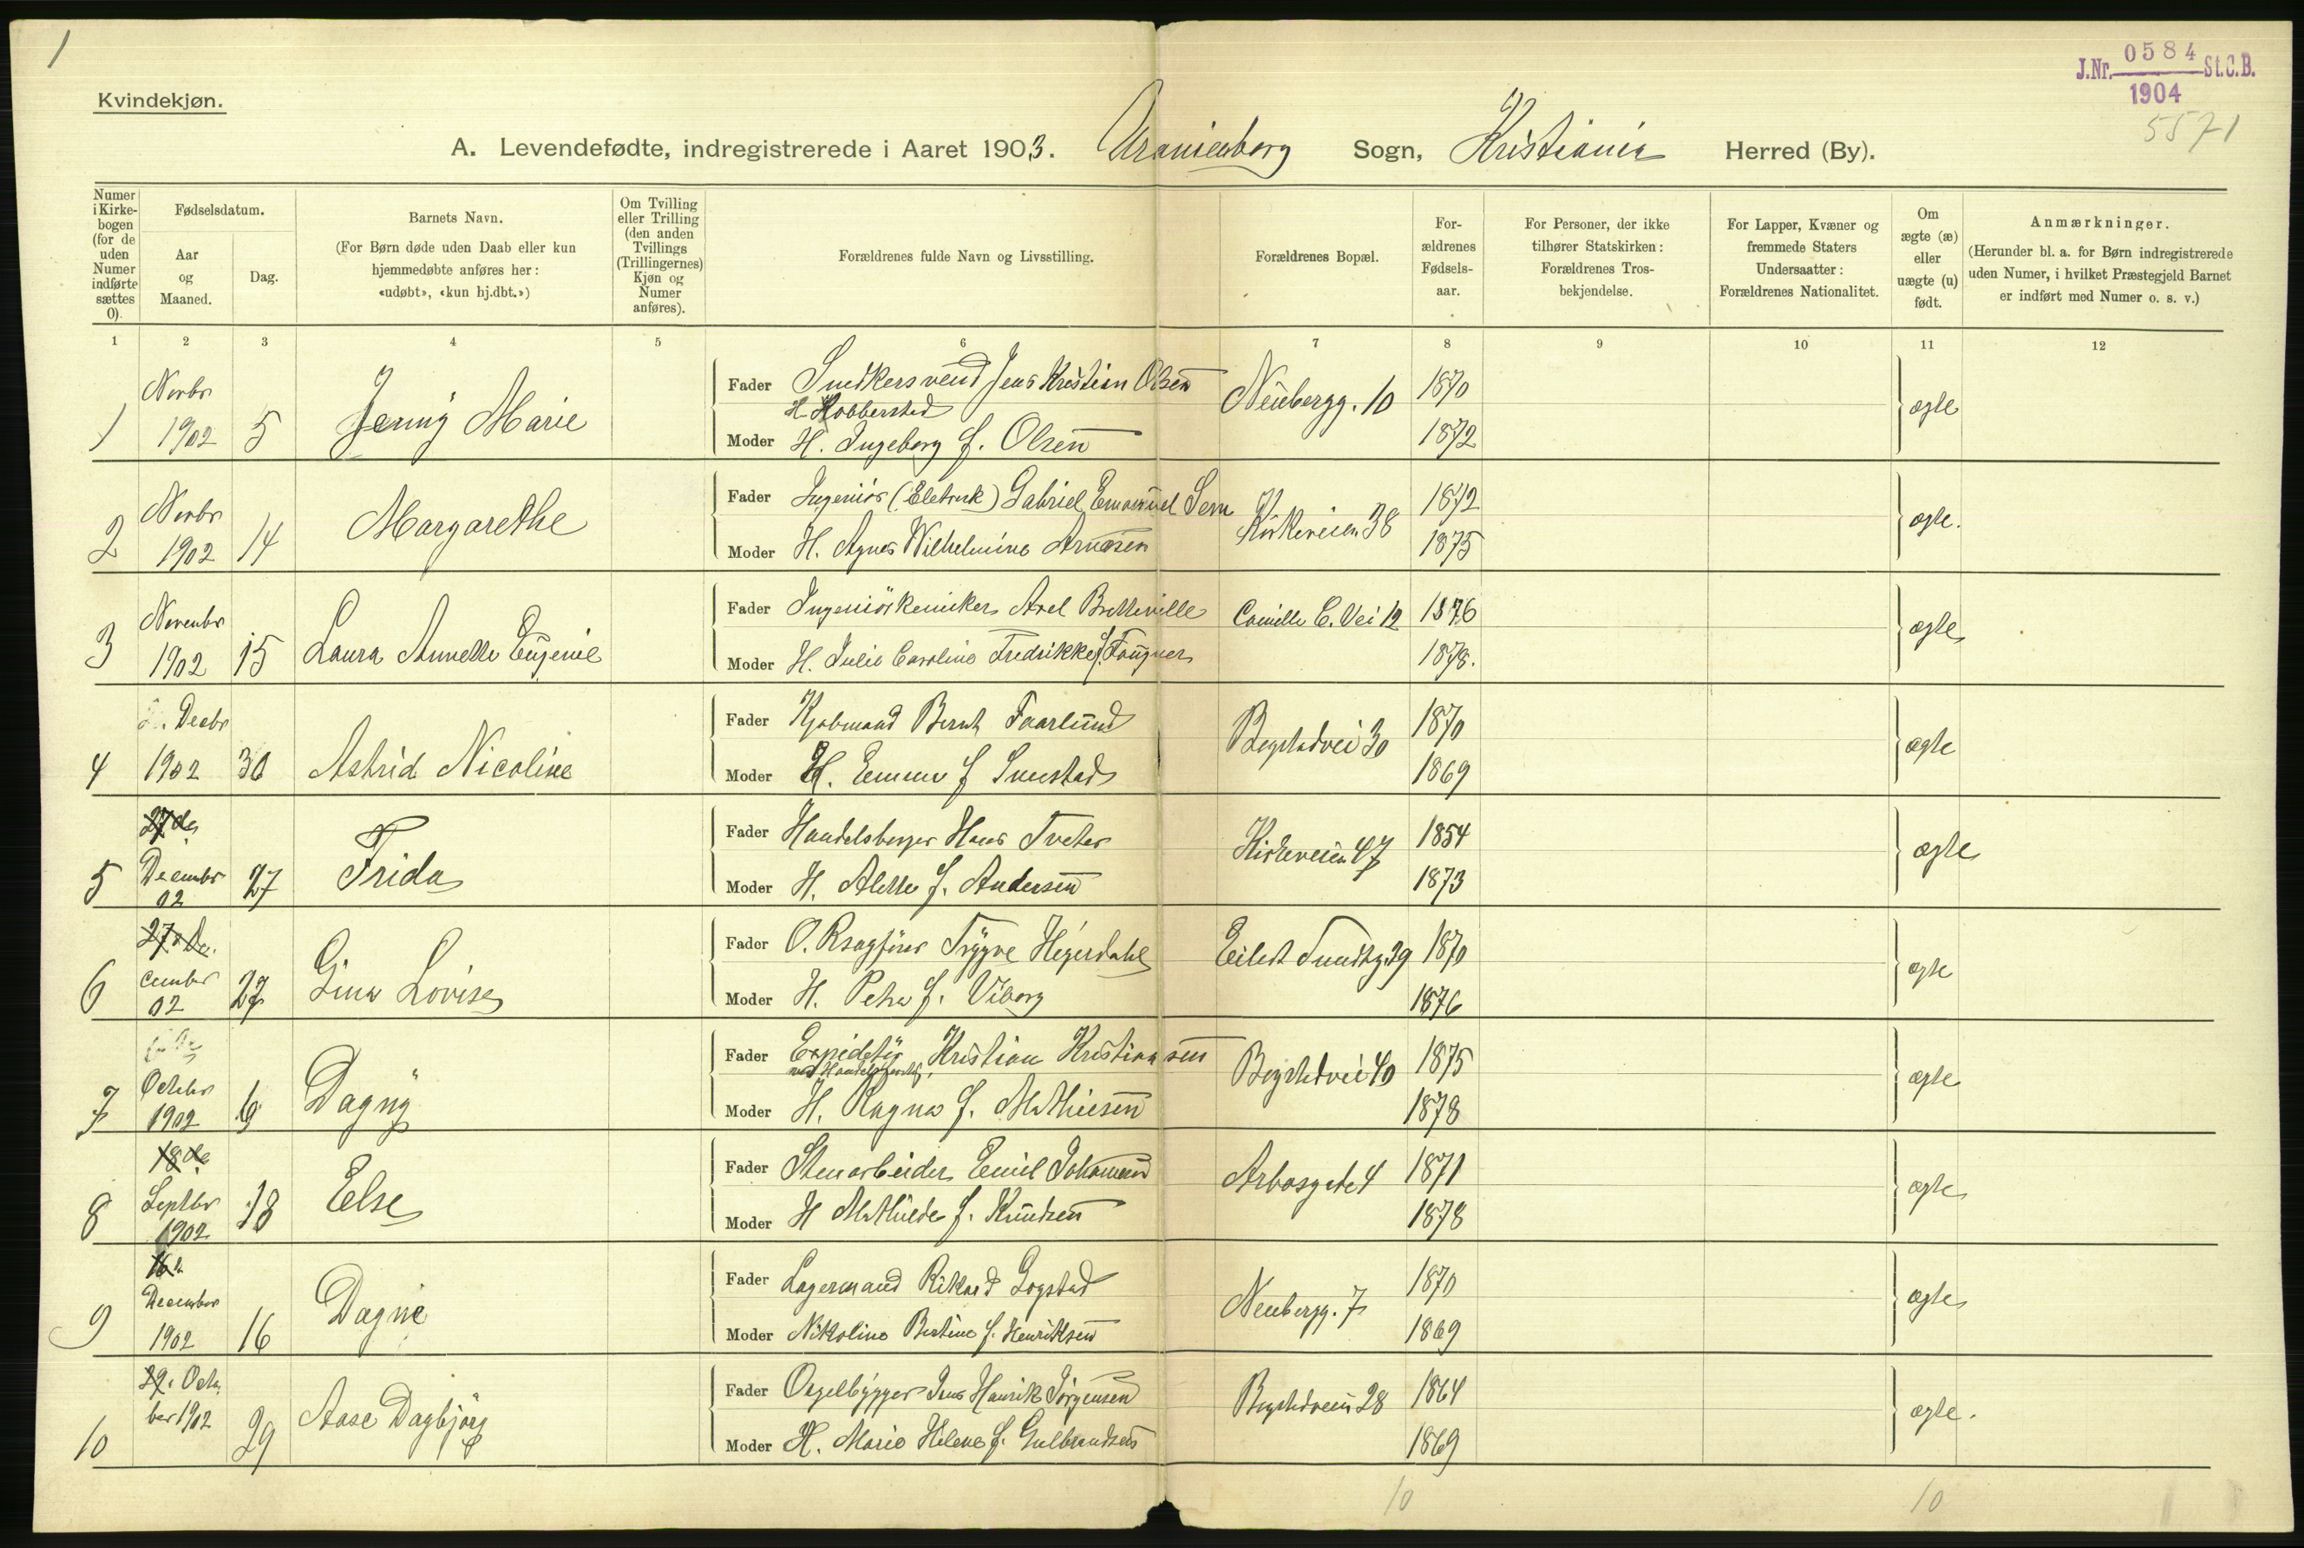 1
J.Nr. 0584 St.C.B.
1904
5571
Kvindekjøn.
A. Levendefødte, indregistrerede i Aaret 1903. Uranienborg Sogn, Kristiania Herred (By).
Numer i Kirke-bogen (for de uden Numer indførte sættes 0).
Fødselsdatum.
Aar og Maaned.
Dag.
Barnets Navn.
(For Børn døde uden Daab eller kun hjemmedøbte anføres her: «udøbt», «kun hj.dbt.»)
Om Tvilling eller Trilling (den anden Tvillings (Trillingernes) Kjøn og Numer anføres).
Forældrenes fulde Navn og Livsstilling.
Forældrenes Bopæl.
For-ældrenes Fødsels-aar.
For Personer, der ikke tilhører Statskirken: Forældrenes Tros-bekjendelse.
For Lapper, Kvæner og fremmede Staters Undersaatter: Forældrenes Nationalitet.
Om ægte (æ) eller uægte (u) født.
Anmærkninger.
(Herunder bl. a. for Børn indregistrerede uden Numer, i hvilket Præstegjeld Barnet er indført med Numer o. s. v.)
1 2 3 4 5 6 7 8 9 10 11 12
1 Novbr 1902 5 Jenny Marie
Fader Snedkersvend Jens Kristian Olsen
Hobberstad
Moder H. Ingeborg f. Olsen
Neubergg. 10 1870 1872 ægte
2 Novbr 1902 14 Margarethe
Fader Ingeniør (Eletrisk) Gabriel Emanuel Sem
Moder H. Agnes Wilhelmine Arnesen
Kirkeveien 38 1872 1875 ægte.
3 Novembr 1902 15 Laura Annette Eugenie
Fader Ingeniör kemiker Axel Bretteville
Moder H. Julie Caroline Fredrikke f. Fougner
Camilla C. Vei 12 1876 1878. ægte
4 Decbr 1902 30 Astrid Nicoline
Fader Kjøbmand Bernt Faarlund
Moder H. Emma f
Bogstadvei 30 1870 1869 ægte
27de
5 Decembr 02 27 Frida
Fader Handelsborger Hans Tveter
Moder H. Alette f. Andersen
Kirkeveien 47 1854 1873 ægte
27 De.
6 cember 02 27 Gina Lovise
Fader O. Rsagfører Trygve Heyerdahl
Moder H. Petra f. Viborg
Eilert Sundtg. 39 1870 1876 ægte
7 Octobr 1902 6 Dagny
Fader Expeditör Kristian Kristiansen
Moder H. Ragna f. Mathiesen
Bogstadvei 40 1875 1878 ægte
18de
8 Septbr 1902 18 Else
Fader Stenarbeider Emil Johansen
Moder H Mathilde f. Knudsen
Arbosgate 4 1871 1878 ægte
16
9 December 1902 16 Dagne
Fader Lagermand Rikard Gogstad
Moder Nikoline Bertine f. Henriksen
Neubergg. 7 1870 1869 ægte
29. Octo
10 ber 1902 29 Aase Dagbjörg
Fader Orgelbygger Jens Henrik Jörgensen
Moder H. Marie Helene f. Gulbrandsen
Bogstadveien 28 1864 1869 ægte.
10 10